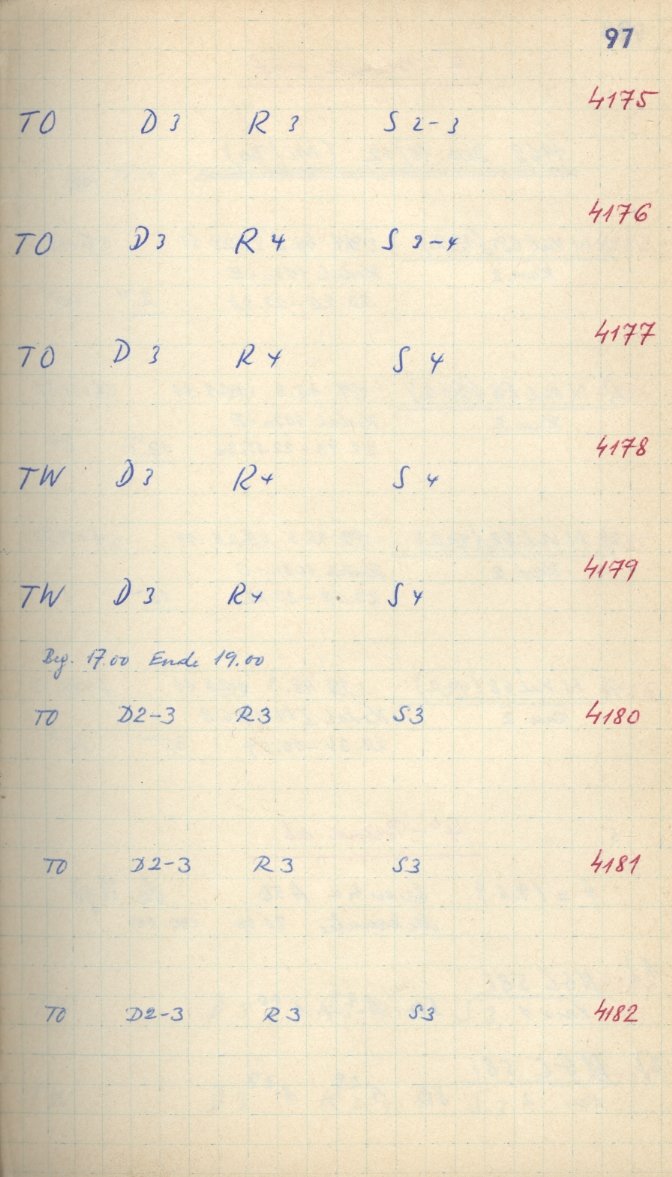 97
4175
TO D 3 R 3 S 2-3
4176
TO D3 R 4 S 3-4
4177
TO D 3 R 4 S 4
4178
TW D 3 R 4 S 4
4179
TW D 3 R 4 S 4
Beg. 17.00 Ende 19.00
TO D2-3 R3 S3 4180
TO D2-3 R3 S3 4181
TO D2-3 R3 S3 4182